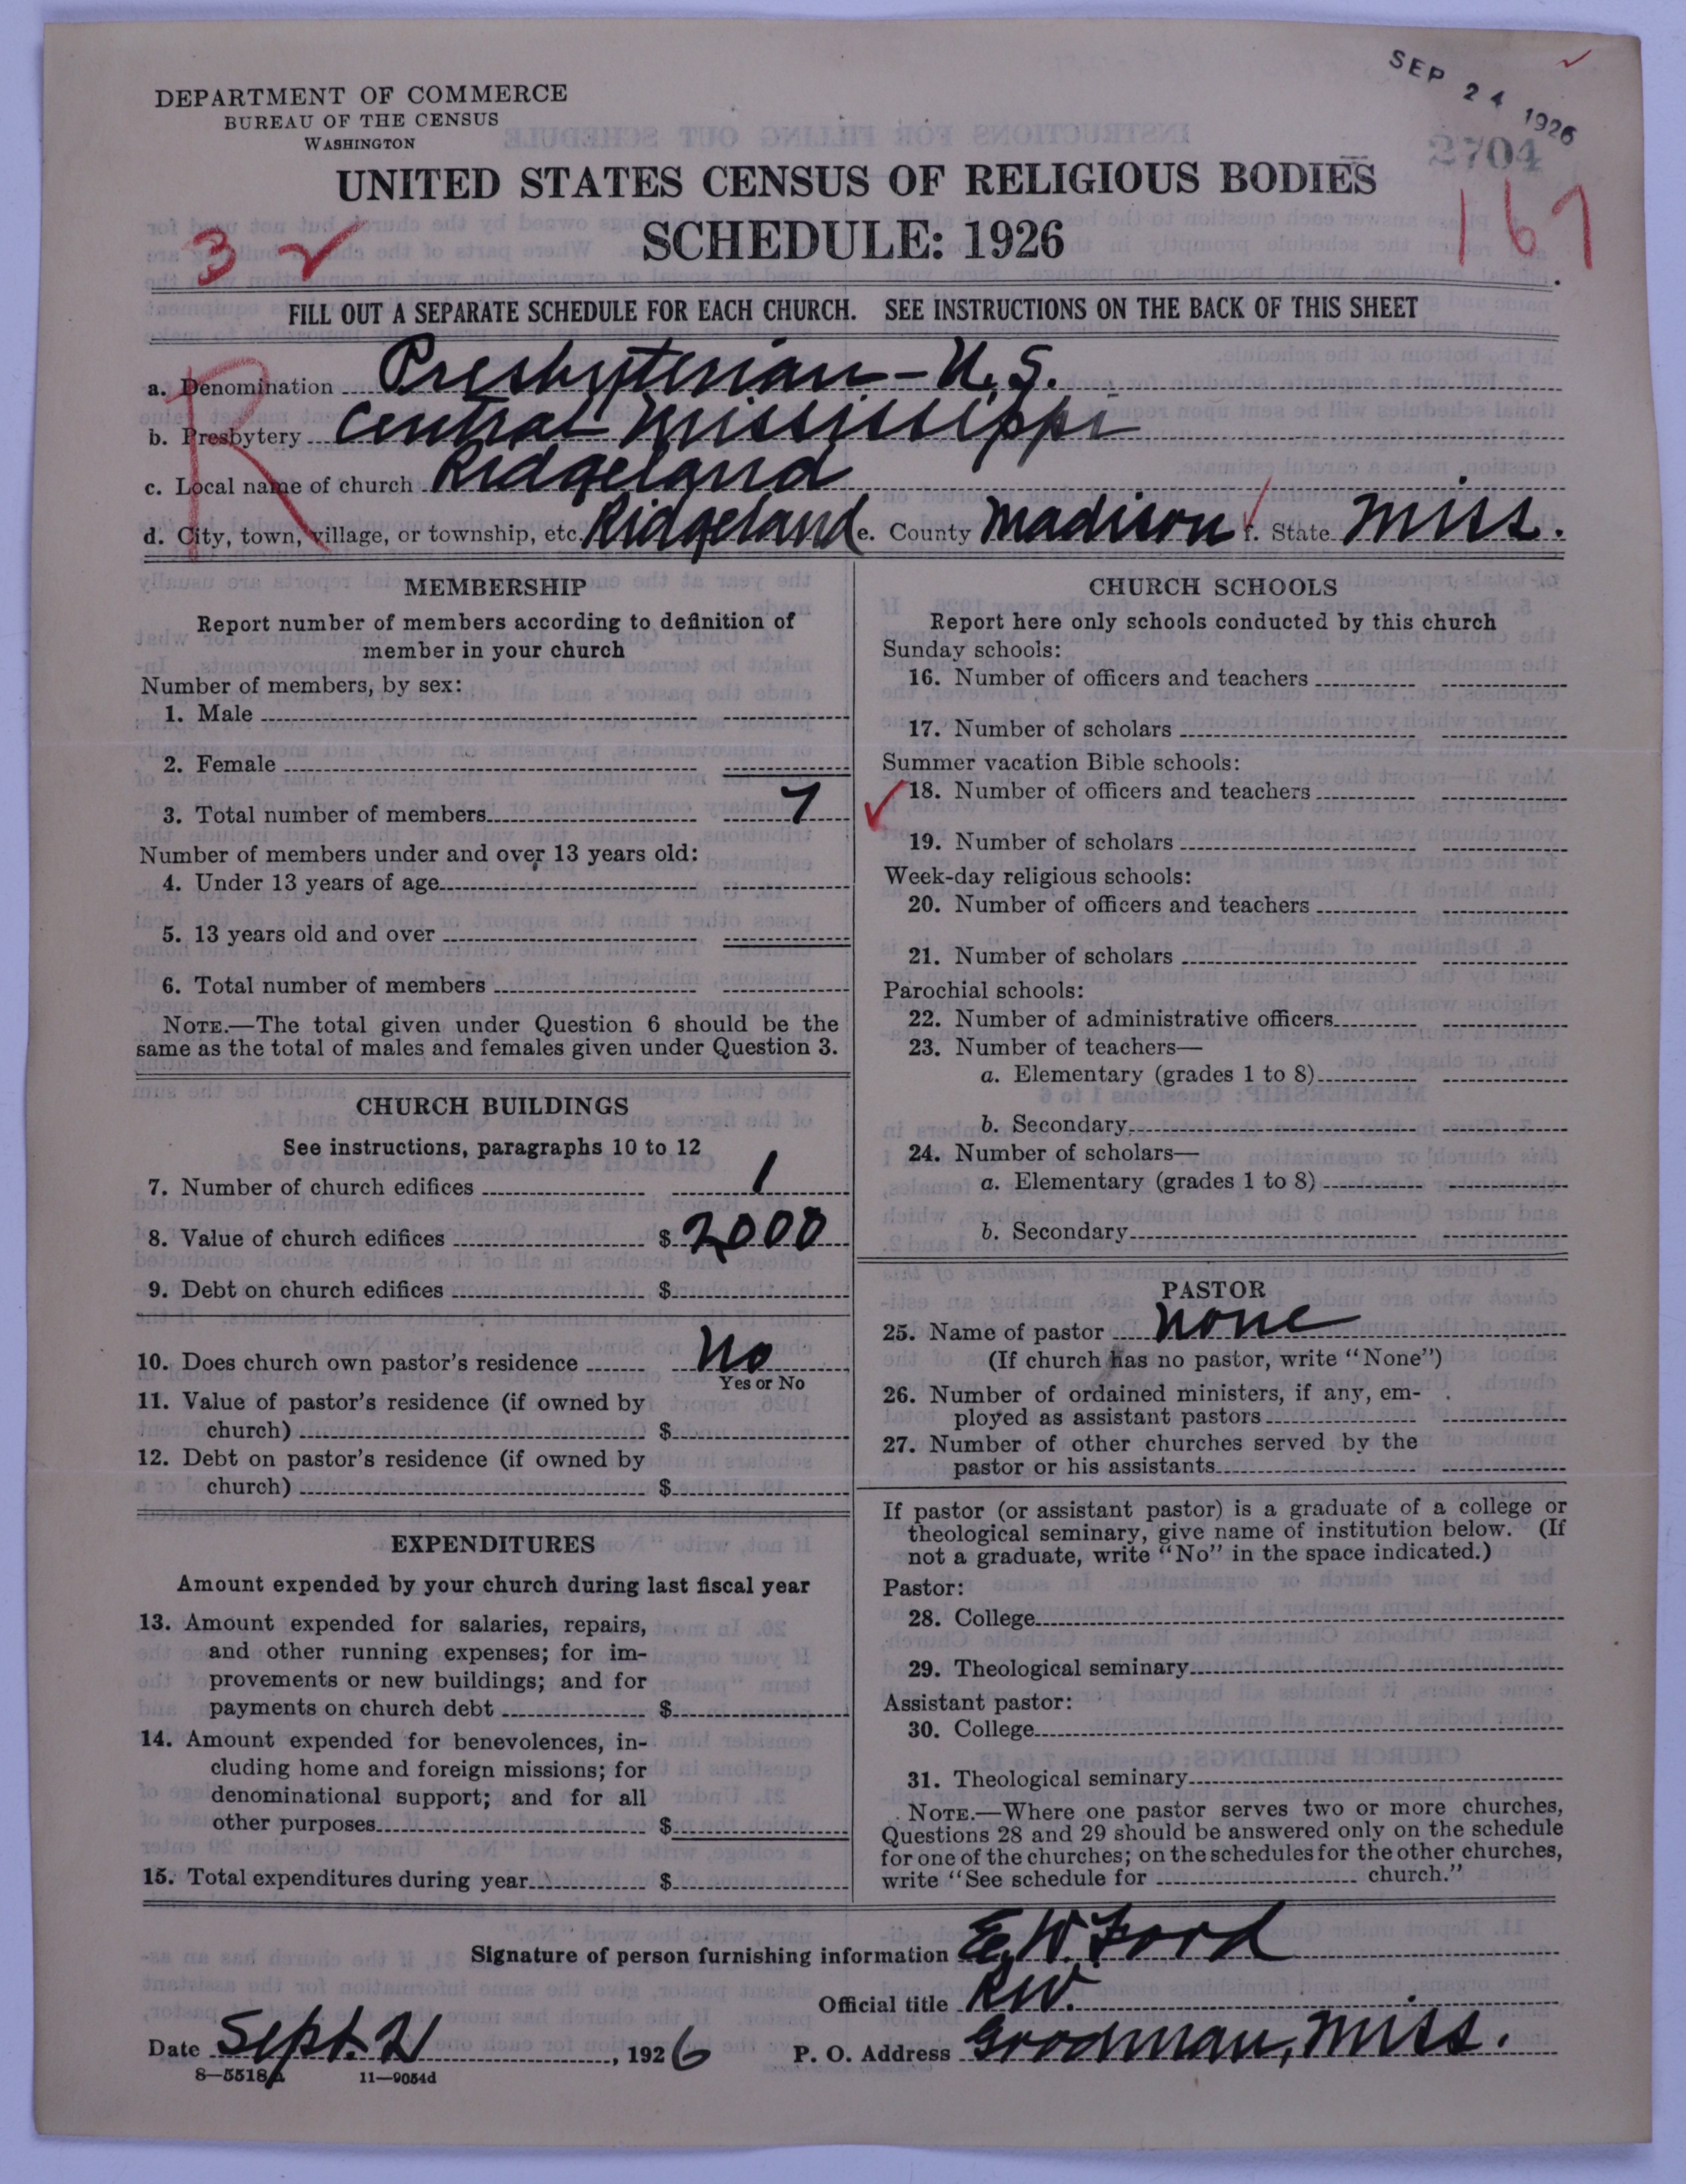 DEPARTMENT OF COMMERCE
BUREAU OF THE CENSUS
WASHINGTON
SEP 24 1926
2704
UNITED STATES CENSUS OF RELIGIOUS BODIES
SCHEDULE: 1926
3
167
FILL OUT A SEPARATE SCHEDULE FOR EACH CHURCH. SEE INSTRUCTIONS ON THE BACK OF THIS SHEET
R
a. Denomination Presbyterian - U.S.
b. Presbytery Central Mississippi
c. Local name of church Ridgeland
d. City, town, village, or township, etc. Ridgeland e. County Madison f. State Miss.
MEMBERSHIP
Report number of members according to definition of
member in your church
Number of members, by sex:
1. Male
2. Female
3. Total number of members 7
Number of members under and over 13 years old:
4. Under 13 years of age
5. 13 years old and over
6. Total number of members
NOTE.—The total given under Question 6 should be the
same as the total of males and females given under Question 3.
CHURCH BUILDINGS
See instructions, paragraphs 10 to 12
7. Number of church edifices 1
8. Value of church edifices $ 2000
9. Debt on church edifices $
10. Does church own pastor's residence No
Yes or No
11. Value of pastor's residence (if owned by
church) $
12. Debt on pastor's residence (if owned by
church) $
EXPENDITURES
Amount expended by your church during last fiscal year
13. Amount expended for salaries, repairs,
and other running expenses; for im-
provements or new buildings; and for
payments on church debt $
14. Amount expended for benevolences, in-
cluding home and foreign missions; for
denominational support; and for all
other purposes $
15. Total expenditures during year $
CHURCH SCHOOLS
Report here only schools conducted by this church
Sunday schools:
16. Number of officers and teachers
17. Number of scholars
Summer vacation Bible schools:
18. Number of officers and teachers
19. Number of scholars
Week-day religious schools:
20. Number of officers and teachers
21. Number of scholars
Parochial schools:
22. Number of administrative officers
23. Number of teachers—
a. Elementary (grades 1 to 8)
b. Secondary
24. Number of scholars—
a. Elementary (grades 1 to 8)
b. Secondary
PASTOR
25. Name of pastor None
(If church has no pastor, write "None")
26. Number of ordained ministers, if any, em-
ployed as assistant pastors
27. Number of other churches served by the
pastor or his assistants
If pastor (or assistant pastor) is a graduate of a college or
theological seminary, give name of institution below. (If
not a graduate, write "No" in the space indicated.)
Pastor:
28. College
29. Theological seminary
Assistant pastor:
30. College
31. Theological seminary
NOTE.—Where one pastor serves two or more churches,
Questions 28 and 29 should be answered only on the schedule
for one of the churches; on the schedules for the other churches,
write "See schedule for church."
Signature of person furnishing information E. W. Ford
Official title Rev.
Date Sept. 21, 1926 P. O. Address Goodman, Miss.
8—5518A 11—9054d